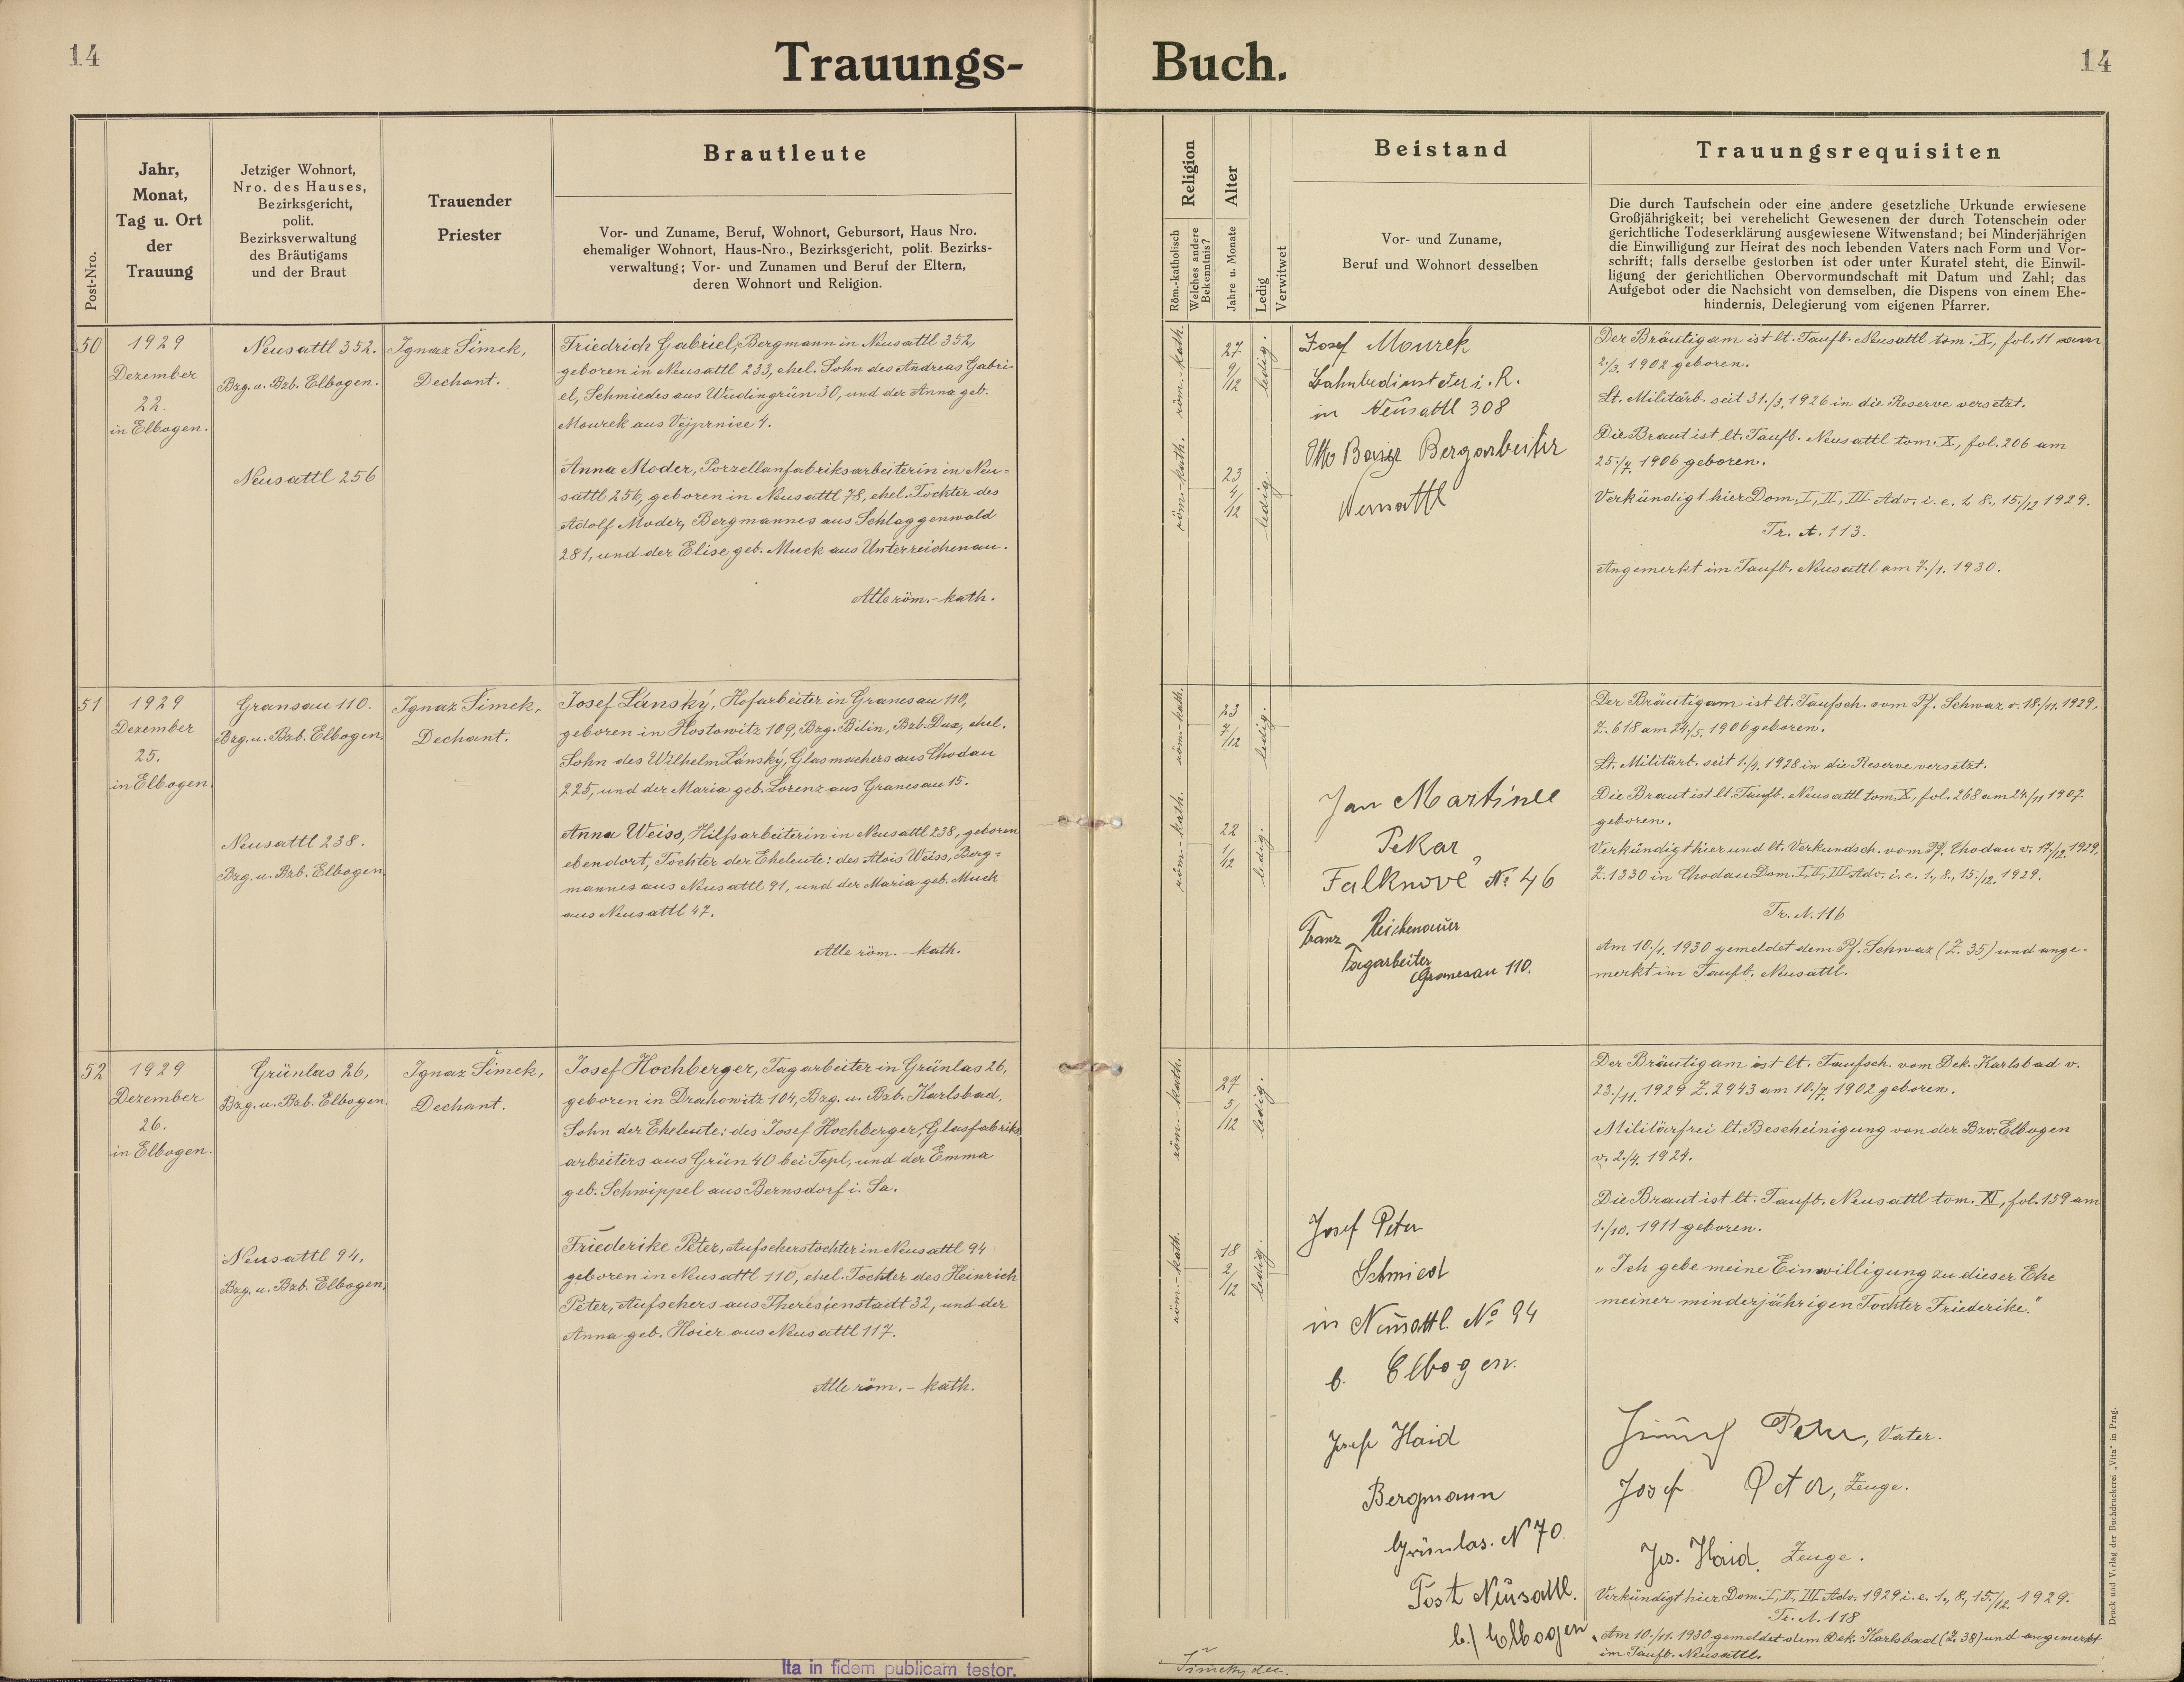 14
Trauungs-
Buch.
14
Post-Nro.
Jahr,
Monat,
Tag u. Ort
der
Trauung
Jetziger Wohnort,
Nro. des Hauses,
Bezirksgericht,
polit.
Bezirksverwaltung
des Bräutigams
und der Braut
Trauender
Priester
Brautleute
Vor- und Zuname, Beruf, Wohnort, Gebursort, Haus Nro.
ehemaliger Wohnort, Haus-Nro., Bezirksgericht, polit. Bezirks-
verwaltung; Vor- und Zunamen und Beruf der Eltern,
deren Wohnort und Religion.
Religion
Röm.-katholisch
Welches andere
Bekenntnis?
Alter
Jahre u. Monate
Ledig
Verwitwet
Beistand
Vor- und Zuname,
Beruf und Wohnort desselben
Trauungsrequisiten
Die durch Taufschein oder eine andere gesetzliche Urkunde erwiesene
Großjährigkeit; bei verehelicht Gewesenen der durch Totenschein oder
gerichtliche Todeserklärung ausgewiesene Witwenstand; bei Minderjährigen
die Einwilligung zur Heirat des noch lebenden Vaters nach Form und Vor-
schrift; falls derselbe gestorben ist oder unter Kuratel steht, die Einwil-
ligung der gerichtlichen Obervormundschaft mit Datum und Zahl; das
Aufgebot oder die Nachsicht von demselben, die Dispens von einem Ehe-
hindernis, Delegierung vom eigenen Pfarrer.
50
1929
Dezember
22.
in Elbogen.
Neusattl 352.
Bzg. u. Bzb. Elbogen.
Neusattl 256
Ignaz Šimek,
Dechant.
Friedrich Gabriel, Bergmann in Neusattl 352,
geboren in Neusattl 233, ehel. Sohn des Andreas Gabri-
el, Schmiedes aus Wudingrün 30, und der Anna geb.
Mourek aus Vejprnice 4.
Anna Moder, Porzellanfabriksarbeiterin in Neu=
sattl 256, geboren in Neusattl 78, ehel. Tochter des
Adolf Moder, Bergmannes aus Schlaggenwald
281, und der Elise geb. Muck aus Unterreichenau.
Alle röm.-kath.
röm.-kath.
27
9/12
ledig.
röm.-kath.
23
4/12
ledig.
Josef Mourek
Bahnbediensteter i. R.
in Neusattl 308
Otto Bergarbeiter
Neusattl
Der Bräutigam ist lt. Taufb. Neusattl tom. X, fol. 11 am
2./3. 1902 geboren.
Lt. Militärb. seit 31./3. 1926 in die Reserve versetzt.
Die Braut ist lt. Taufb. Neusattl tom. X, fol. 206 am
25./7. 1906 geboren.
Verkündigt hier Dom. I, II, III Adv. i. e. 1. 8., 15./12 1929.
Tr. A. 113.
Angemerkt im Taufb. Neusattl am 7./1. 1930.
51
1929
Dezember
25.
in Elbogen.
Gransau 110.
Bzg. u. Bzb. Elbogen.
Neusattl 238.
Bzg. u. Bzb. Elbogen.
Ignaz Šimek,
Dechant.
Josef Lánský, Hofarbeiter in Granesau 110,
geboren in Hostowitz 109, Bzg. Bilin, Bzb. Dux, ehel.
Sohn des Wilhelm Lánský, Glasmachers aus Chodau
225, und der Maria geb. Lorenz aus Granesau 15.
Anna Weiss, Hilfsarbeiterin in Neusattl 238, geboren
ebendort, Tochter der Eheleute: des Alois Weiss, Berg=
mannes aus Neusattl 91, und der Maria geb. Muck
aus Neusattl 47.
Alle röm.-kath.
röm.-kath.
23
7/12
ledig.
röm.-kath.
22
1/12
ledig.
Jan Martinec
Pekar
Falknově No 46
Franz Reichenauer
Tagarbeiter
Granesau 110.
Der Bräutigam ist lt. Taufsch. vom Pf. Schwaz v. 18./11. 1929,
Z. 618 am 24./5. 1906 geboren.
Lt. Militärb. seit 1./4. 1928 in die Reserve versetzt.
Die Braut ist lt. Taufb. Neusattl tom. X, fol. 268 am 24./11 1907
geboren.
Verkündigt hier und lt. Verkundsch. vom Pf. Chodau v. 17./12. 1929,
Z. 1330 in Chodau Dom. I, II, III Adv. i. e. 1., 8., 15./12. 1929.
Tr. A. 116
Am 10./1. 1930 gemeldet dem Pf. Schwaz (Z. 35) und ange-
merkt im Taufb. Neusattl.
52
1929
Dezember
26.
in Elbogen.
Grünlas 26,
Bzg. u. Bzb. Elbogen.
Neusattl 94,
Bzg. u. Bzb. Elbogen.
Ignaz Šimek,
Dechant.
Josef Hochberger, Tagarbeiter in Grünlas 26,
geboren in Drahowitz 104, Bzg. u. Bzb. Karlsbad,
Sohn der Eheleute: des Josef Hochberger, Glasfabriks
arbeiters aus Grün 40 bei Tepl, und der Emma
geb. Schwippel aus Bernsdorf i. Sa.
Friederike Peter, Aufseherstochter in Neusattl 94
geboren in Neusattl 110, ehel. Tochter des Heinrich
Peter, Aufsehers aus Theresienstadt 32, und der
Anna geb. Hoier aus Neusattl 117.
Alle röm.-kath.
röm.-kath.
27
5/12
ledig.
röm.-kath.
18
2/12
ledig.
Josef Peter
Schmied
in Neusattl. No 94
b. Elbogen.
Josef Haid
Bergmann
Grünlas. N 70.
Post Neusattl.
b./ Elbogen
Der Bräutigam ist lt. Taufsch. vom Dek. Karlsbad v.
23./11. 1929 Z. 2943 am 10./7. 1902 geboren.
Militärfrei lt. Bescheinigung von der Bzv. Elbogen
v. 2./4. 1924.
Die Braut ist lt. Taufb. Neusattl tom. XI, fol. 159 am
1./10. 1911 geboren.
„Ich gebe meine Einwilligung zu dieser Ehe
meiner minderjährigen Tochter Friederike."
Peter, Vater.
Josef Peter, Zeuge.
Jos. Haid, Zeuge.
Verkündigt hier Dom. I, II, III Adv. 1929 i. e. 1., 8., 15./12. 1929.
Tr. A. 118
Am 10./11. 1930 gemeldet dem Dek. Karlsbad (Z. 38) und angemerkt
im Taufb. Neusattl.
Ita in fidem publicam testor.
Šimek, dec.
Druck und Verlag der Buchdruckerei „Vita" in Prag.